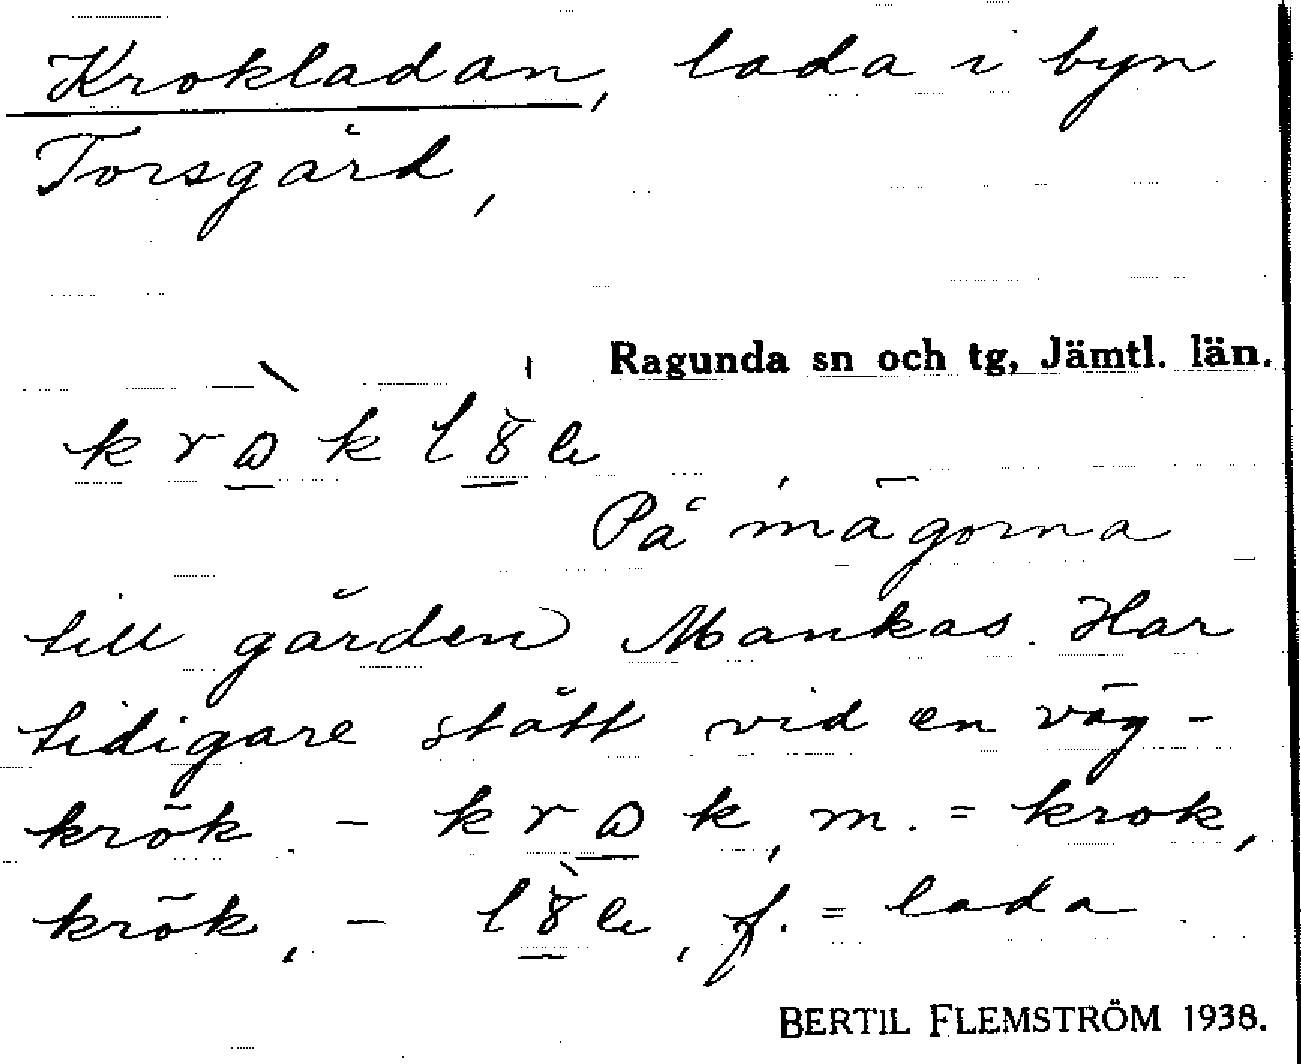 Krokladan, lada i byn
Torsgård,
Ragunda sn och tg, Jämtl. län.
På inägorna
till gården Mankas. Har
tidigare stått vid en väg-
krök - m. = krok,
krök, - f. = lada
BERTIL FLEMSTRÖM 1938.